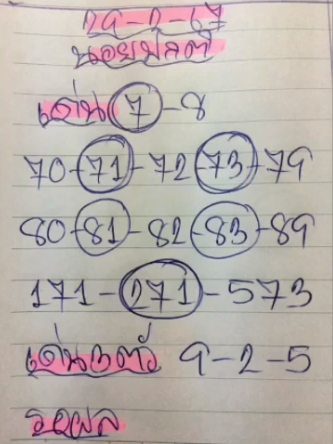 29-2-67
ฮอยปลตี
เด่น 7-8
70-71-72-73-79
80-81-82-83-89
171-271-573
เด่น3ตัว 9-2-5
รอผล